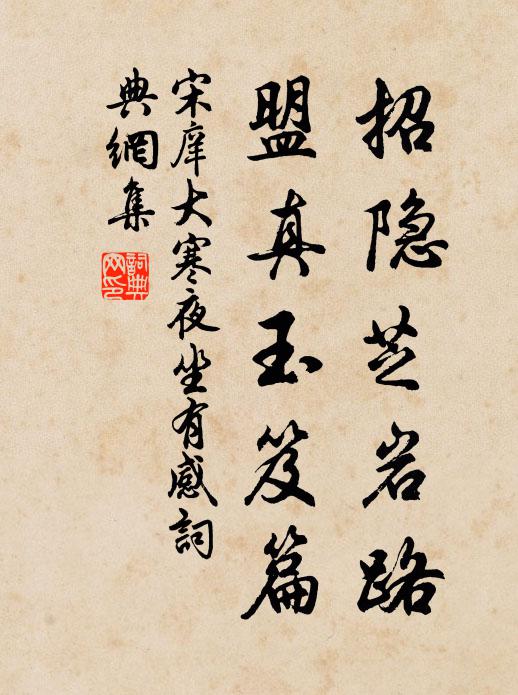 招隐芝岩路
盟真玉笈篇
宋庠大寒夜坐有感詞
典網集
詞典网印